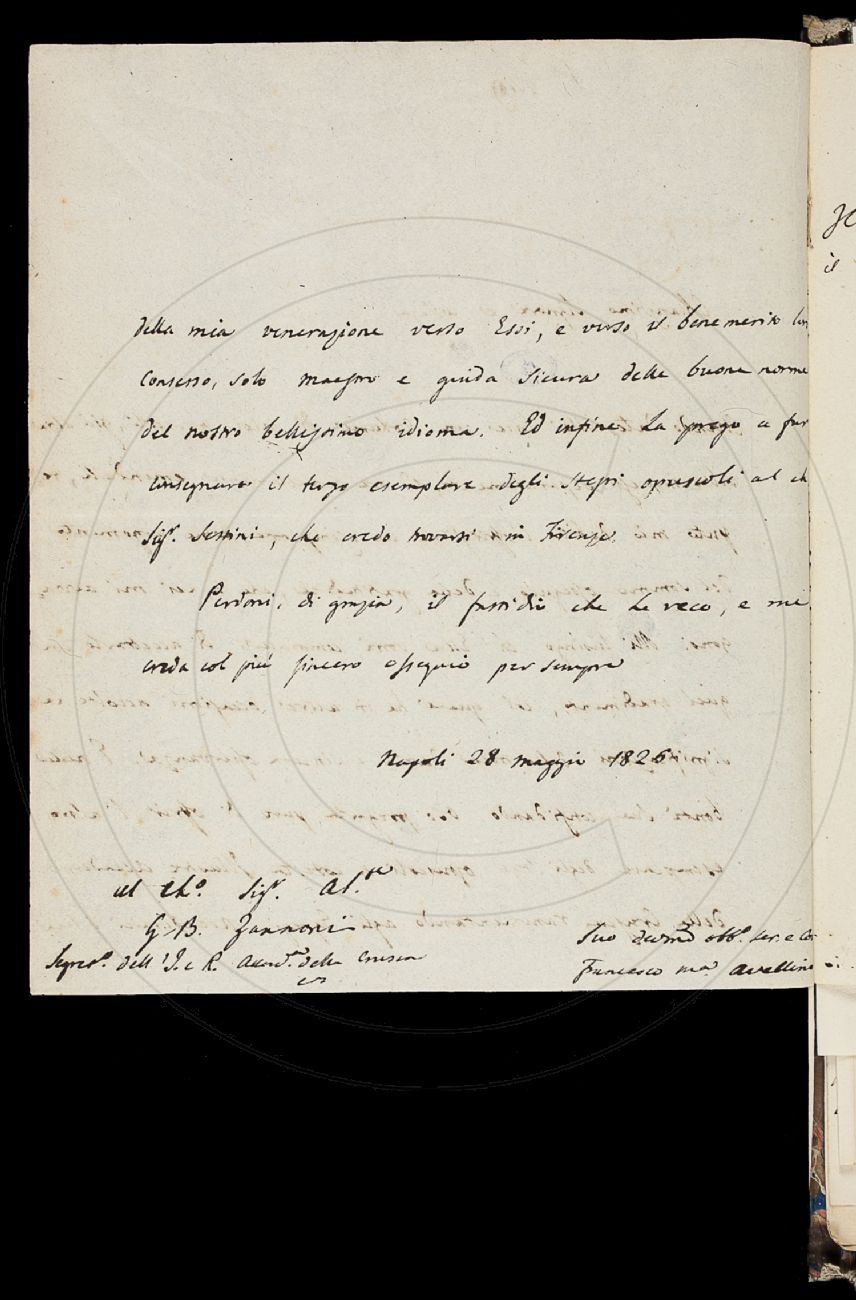 della mia venerazione verso Essi, e verso il benemerito
Consesso, solo maestro e guida sicura delle buone norme
del nostro bellissimo idioma. Ed infine La prego a far
consegnare il terzo esemplare degli stessi opuscoli al ch
Sigr. Sestini, che credo trovarsi in Firenze.
Perdoni, di grazia, il fastidio che Le reco, e mi
creda col più sincero ossequio per sempre
Napoli 28 maggio 1826
al Cho. Sigr. Ab.te
G B. Zannoni
Segreto. dell'I. e R. Accad.a della Crusca
Suo devmo obbo. ser. e
Francesco Ma. Avellino